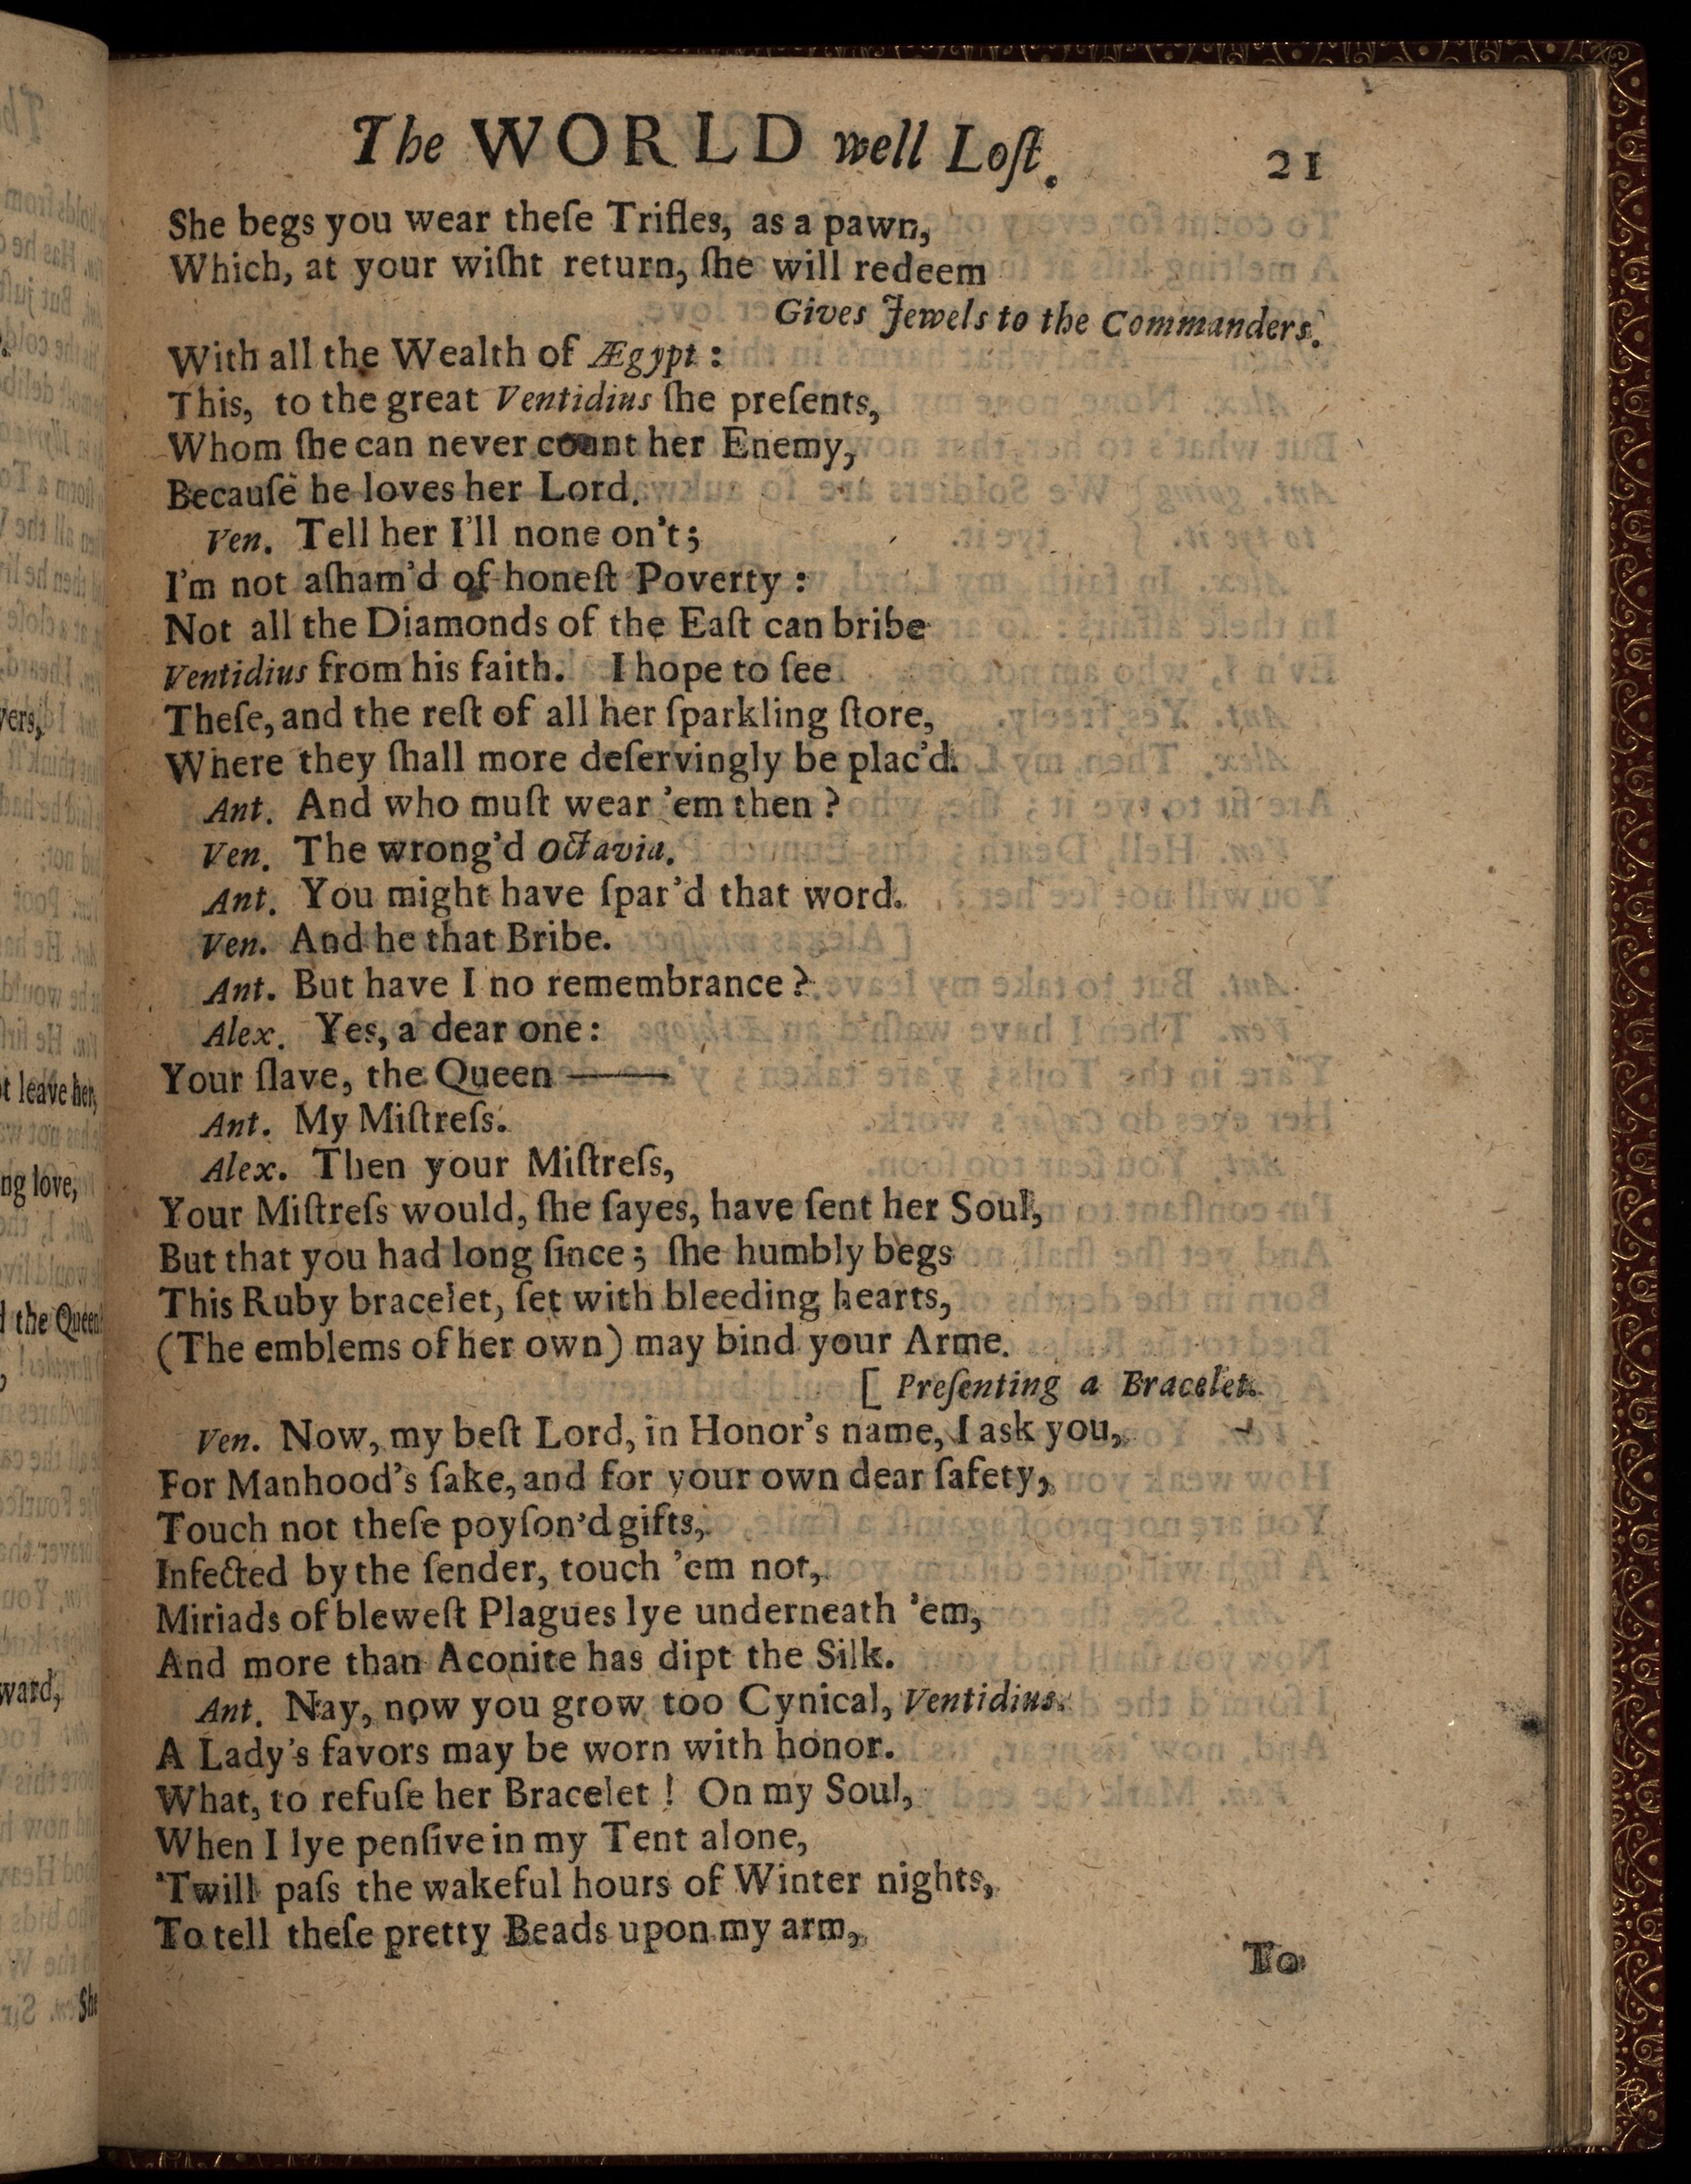 The WORLD well Loſt.
21
She begs you wear theſe Trifles, as a pawn,
Which, at your wiſht return, ſhe will redeem
Gives Jewels to the Commanders.
With all the Wealth of Ægypt :
This, to the great Ventidius ſhe preſents,
Whom ſhe can never count her Enemy,
Becauſe he loves her Lord.
Ven. Tell her I'll none on't;
I'm not aſham'd of honeſt Poverty :
Not all the Diamonds of the Eaſt can bribe
Ventidius from his faith. I hope to ſee
Theſe, and the reſt of all her ſparkling ſtore,
Where they ſhall more deſervingly be plac'd.
Ant. And who muſt wear 'em then ?
Ven. The wrong'd Octavia.
Ant. You might have ſpar'd that word.
Ven. And he that Bribe.
Ant. But have I no remembrance ?
Alex. Yes, a dear one:
Your ſlave, the Queen ——
Ant. My Miſtreſs.
Alex. Then your Miſtreſs,
Your Miſtreſs would, ſhe ſayes, have ſent her Soul,
But that you had long ſince; ſhe humbly begs
This Ruby bracelet, ſet with bleeding hearts,
(The emblems of her own) may bind your Arme.
[ Preſenting a Bracelet.
Ven. Now, my beſt Lord, in Honor's name, I ask you,
For Manhood's ſake, and for your own dear ſafety,
Touch not theſe poyſon'd gifts,
Infected by the ſender, touch 'em not,
Miriads of bleweſt Plagues lye underneath 'em,
And more than Aconite has dipt the Silk.
Ant. Nay, now you grow too Cynical, Ventidius.
A Lady's favors may be worn with honor.
What, to refuſe her Bracelet ! On my Soul,
When I lye penſive in my Tent alone,
'Twill paſs the wakeful hours of Winter nights,
To tell theſe pretty Beads upon my arm,
To